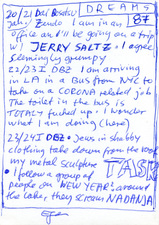 DREAMS
20/21 DBZ Rosatsu
87
Zendo I am in an
office an I'll be going on a trip
w/ JERRY SALTZ. I agree,
seemingly grumpy
22/23 I DBZ I am arriving
in LA in a BUS from NYC to
take on a CORONA related job
The toilet in the bus is
TOTALLY fucked up. I wonder
what I am doing (here)
23/24 I DBZ • Jews in shabby
clothing take down from the roof
my metal sculpture TASK
• I follow a group of
people on NEW YEARS around
the lake, they scream NADANJA